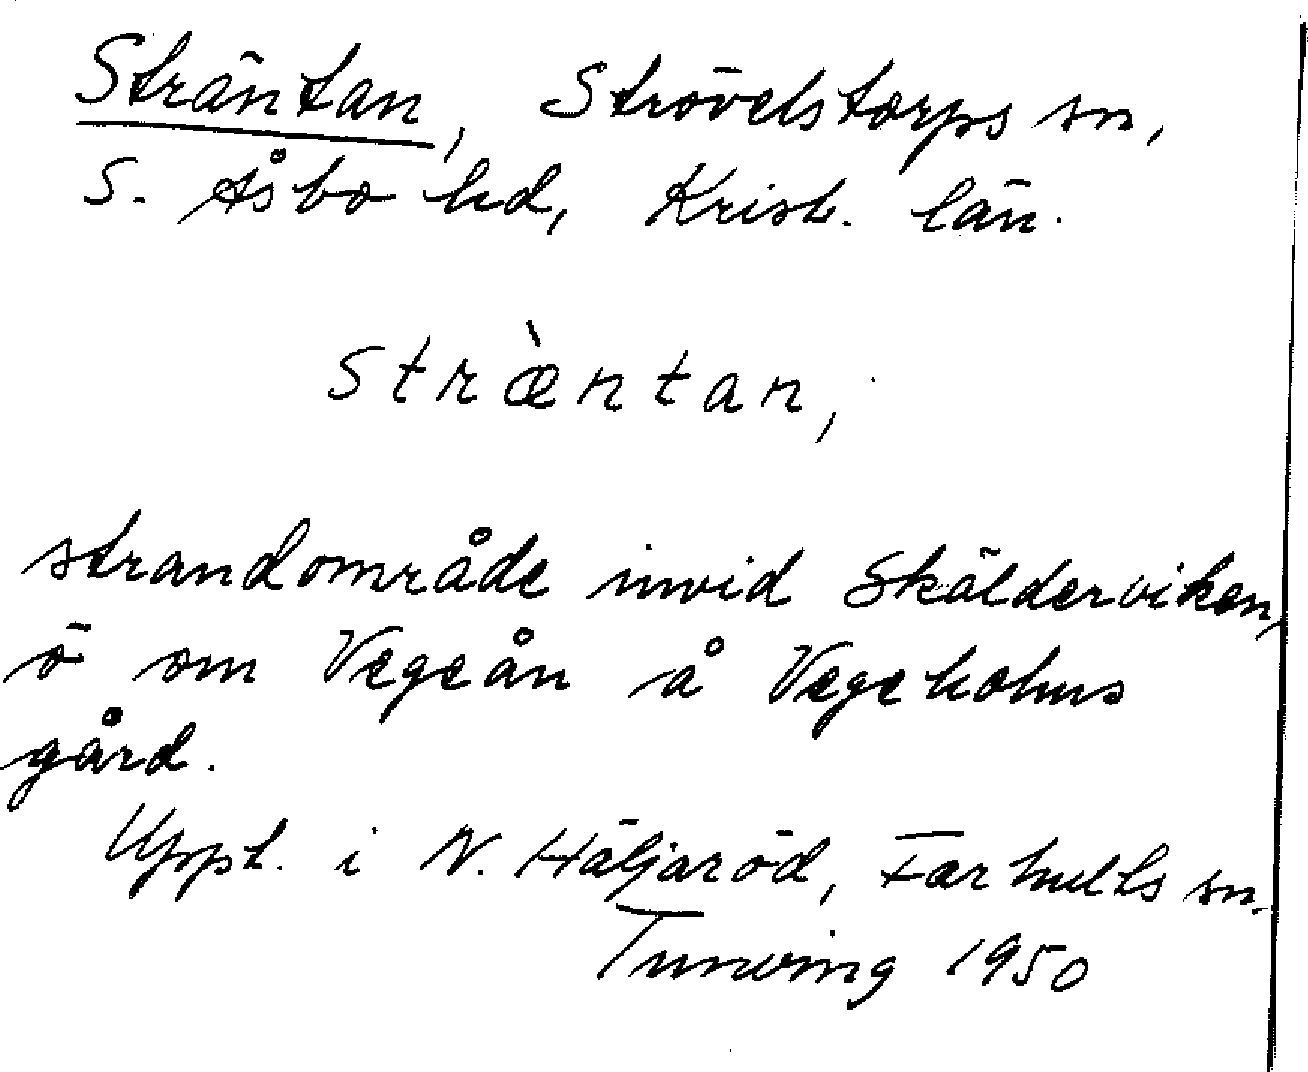 Sträntan, Strövelstorps sn,
S. Åsbo hd, Krist. län.
Stræ̀ntan,
strandområde invid Skälderviken,
ö om Vegeån å Vegeholms
gård.
Uppt. i N. Häljaröd, Farhults sn.
Tuneving 1950